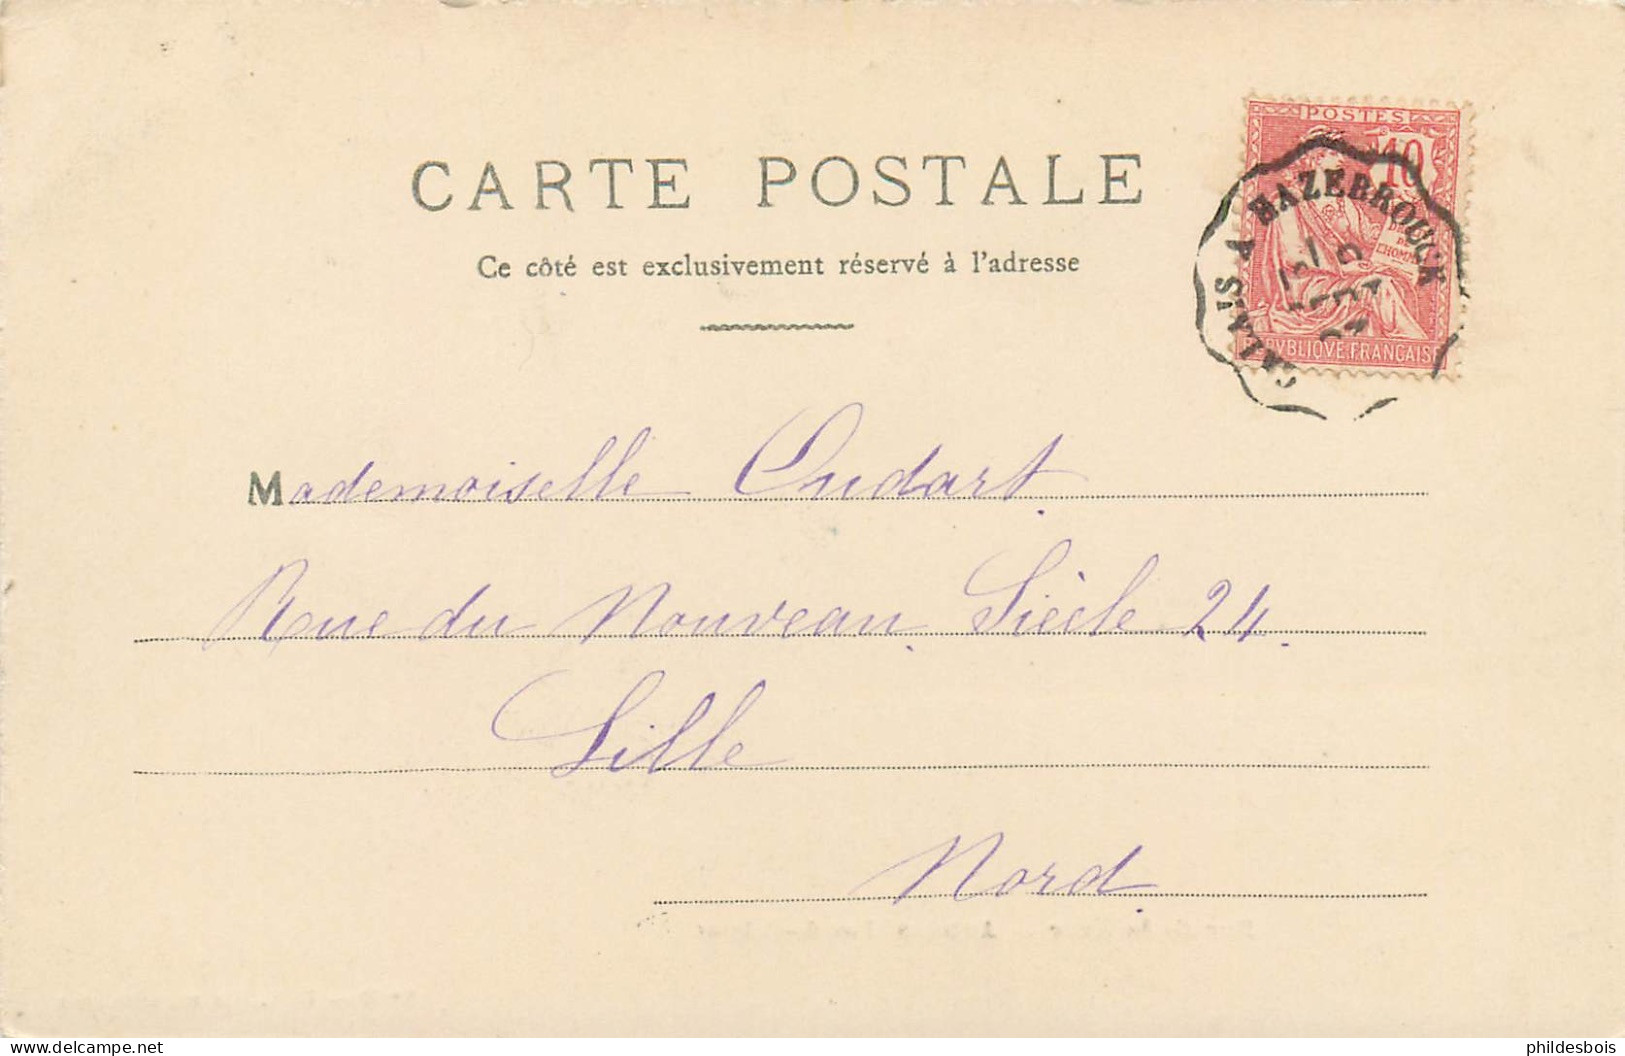 POSTES
10
CARTE POSTALE
CALAIS A HAZEBROUCK
DE
L'HOMME
Ce côté est exclusivement réservé à l'adresse
RÉPVBLIQVE FRANÇAISE
Mademoiselle Oudart
Rue du Nouveau Siècle 24.
Lille
Nord
phildesbois
www.delcampe.net